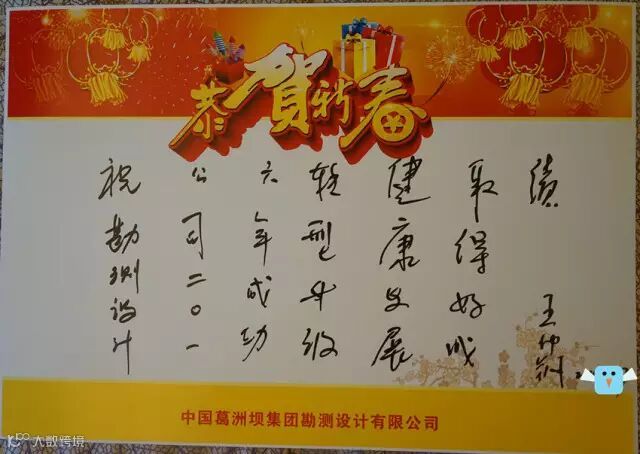 恭贺新春
祝勘测设计
公司二〇一
六年成功
转型升级
健康发展
取得好成
绩
中国葛洲坝集团勘测设计有限公司
大数跨境